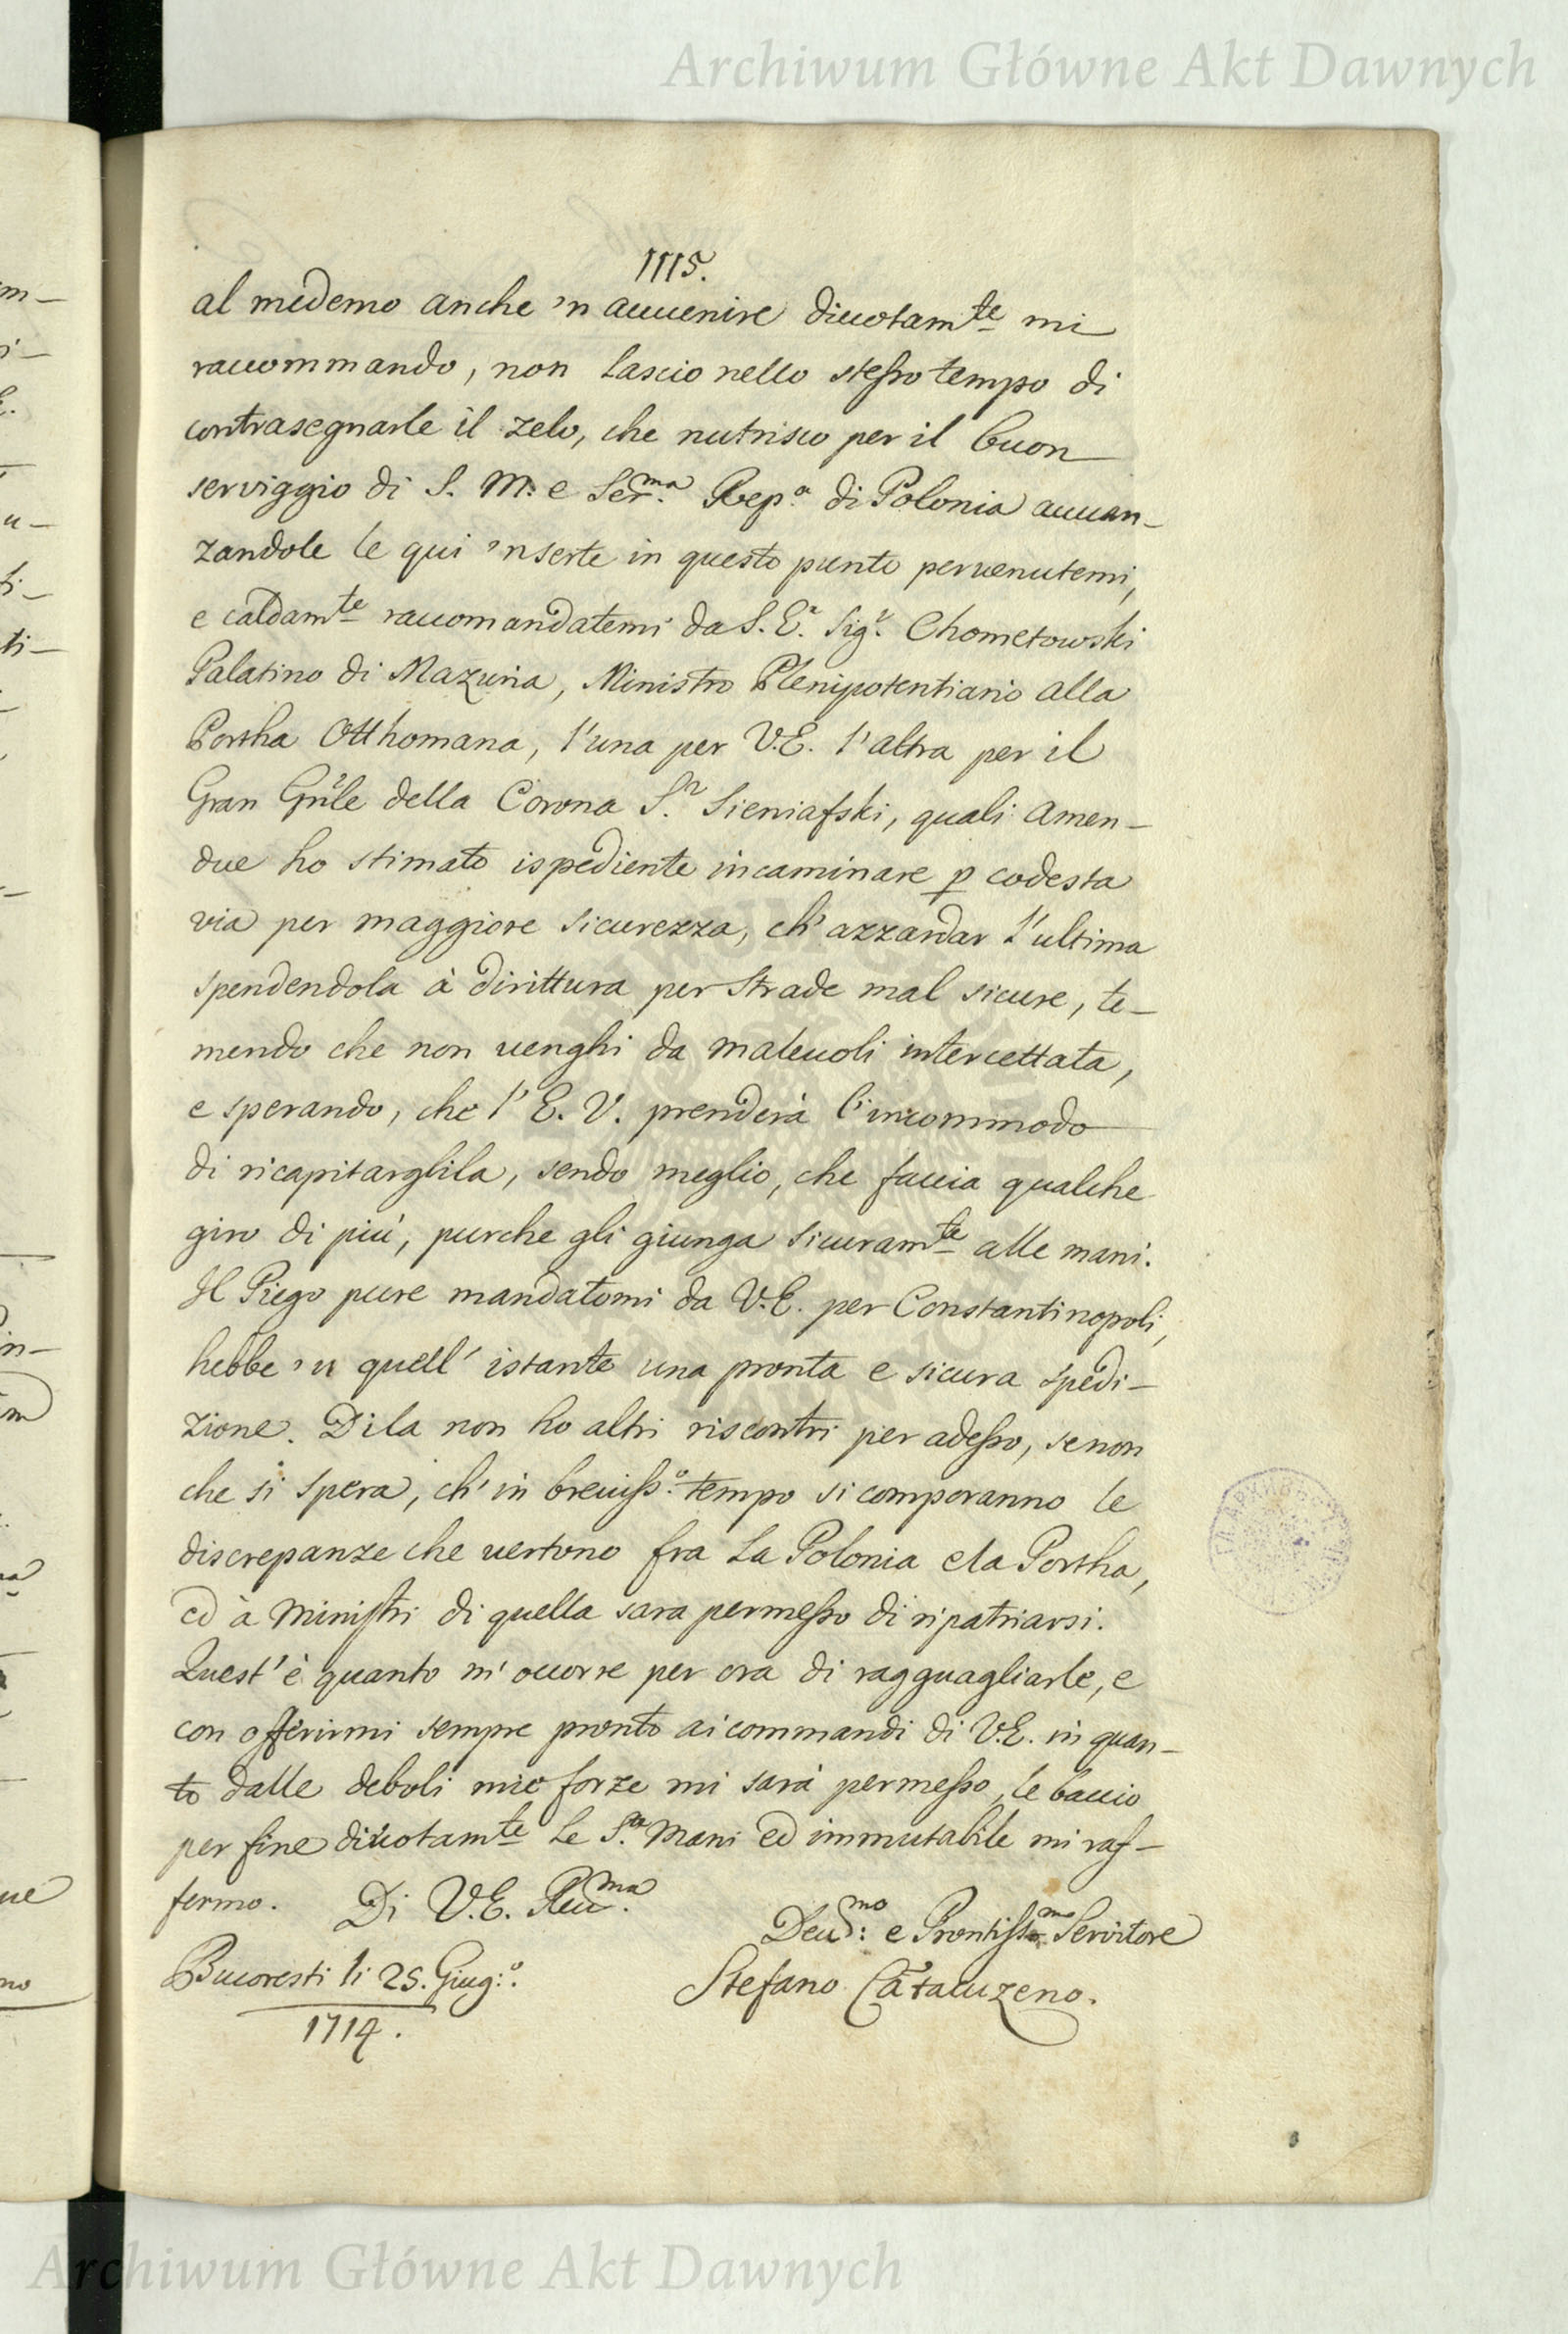 Archiwum Główne Akt Dawnych
1115.
al medemo anche 'n auuenire diuotam^te mi
raccommando, non lascio nello stesso tempo di
contrasegnarle il zelo, che nutrisco per il buon
serviggio di S. M. e Ser.^ma Rep.^a di Polonia auuan-
zandole le qui 'nserte in questo punto peruenutemi,
e caldam^te raccomandatemi da S. E.^a Sig.^r Chometowski
Palatino di Mazuria, Ministro Plenipotentiario alla
Portha Otthomana, l'una per V.E. l'altra per il
Gran Gñle della Corona S.^r Sieniafski, quali amen-
due ho stimato ispediente incaminare p codesta
via per maggiore sicurezza, ch' azzardar l'ultima
spendendola à dirittura per strade mal sicure, te-
mendo che non uenghi da maleuoli intercettata,
e sperando, che l' E. V. prenderà l'incommodo
di ricapitarglila, sendo meglio, che faccia qualche
giro di più, purche gli giunga sicuram^te alle mani.
Il Piego pure mandatomi da V.E. per Constantinopoli,
hebbe 'n quell' istante una pronta e sicura spedi-
zione. Di la non ho altri riscontri per adesso, se non
che si spera, ch' in breuiss.^o tempo si comporanno le
discrepanze che uertono fra la Polonia e la Portha,
ed à Ministri di quella sara permesso di ripatriarsi.
Quest' è quanto m' occorre per ora di ragguagliarle, e
con offerirmi sempre pronto ai commandi di V.E. in quan-
to dalle deboli mie forze mi sarà permesso, le baccio
per fine diuotam^te le S.^te Mani ed immutabile mi raf-
fermo. Di V.E. Reu.^ma
Deu.^mo e Prontiss.^mo Servitore
Bucoresti li 25. Giug.^o
Stefano Cãtacuzeno.
1714.
Archiwum Główne Akt Dawnych